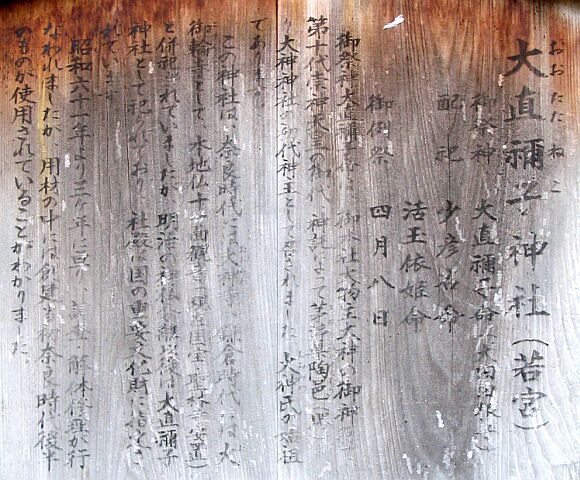 おおたたねこ
大直禰子神社（若宮）
御祭神 大直禰子命（大田田根子）
配祀 少彦名命
活玉依姫命
御例祭 四月八日
御祭神大直禰子命は、御本社大物主大神の御神
第十代崇神天皇の御代、神託によって茅渟県陶邑
り大神神社の初代神主として召されました。大神氏の始祖
であります。
この神社は、奈良時代には大神寺、鎌倉時代には大
御輪寺として、本地仏十一面観音（現在国宝 聖林寺安置）
と併祀されていましたが、明治の神仏分離以後は大直禰子
神社として祀られており、社殿は国の重要文化財に指定さ
れています。
昭和六十一年より三ケ年に亘り、解体修理が行
なわれましたが、用材の中には創建当初奈良時代後半
のものが使用されていることがわかりました。